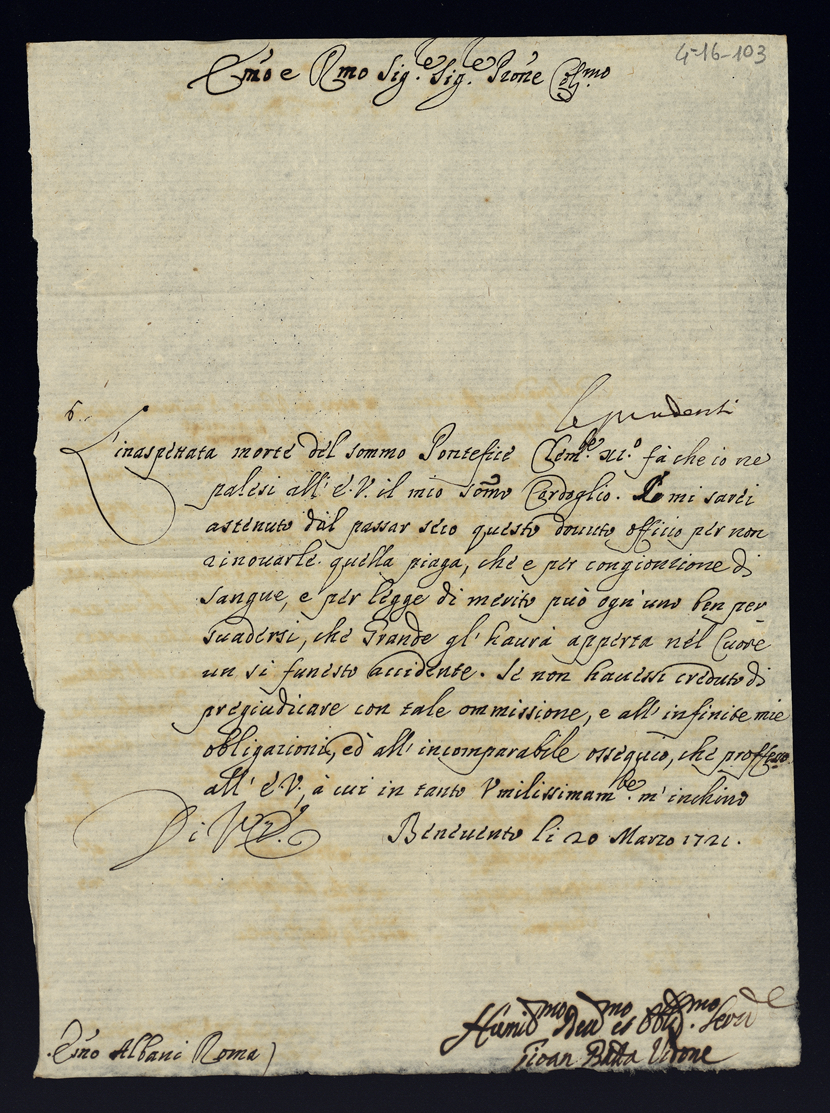 4-16-103
Em̃o e Rmo Sig.re Sig.re Prone Col.mo
6.
L'inaspettata morte del sommo Pontefice Clem.te XI.o fà che io ne
palesi all' E.V. il mio som̃o Cordoglio. Io mi sarei
astenuto dal passar seco questo douuto officio per non
rinouarle quella piaga, che e per congionzione di
sangue, e per légge di merito può ogn'uno ben per
suadersi, che Grande gl' haurà apperta nel Cuore
un si funesto accidente. Se non hauessi creduto di
pregiudicare con tale ommissione, e all' infinite mie
obligazioni, ed all' incomparabile ossequio, che professo
all' E.V., à cui in tanto Vmilissimam.te m' inchino
Di V.E.
Beneuento li 20 Marzo 1721.
Humil.mo Deu.mo et Obl.mo Seru.e
Gioan Batta
Em̃o Albani Roma)